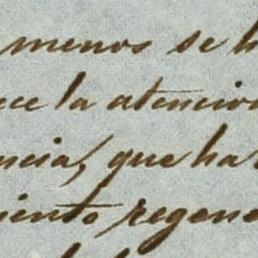 menos se h
ce la atencion
ncia, que ha
iento regene